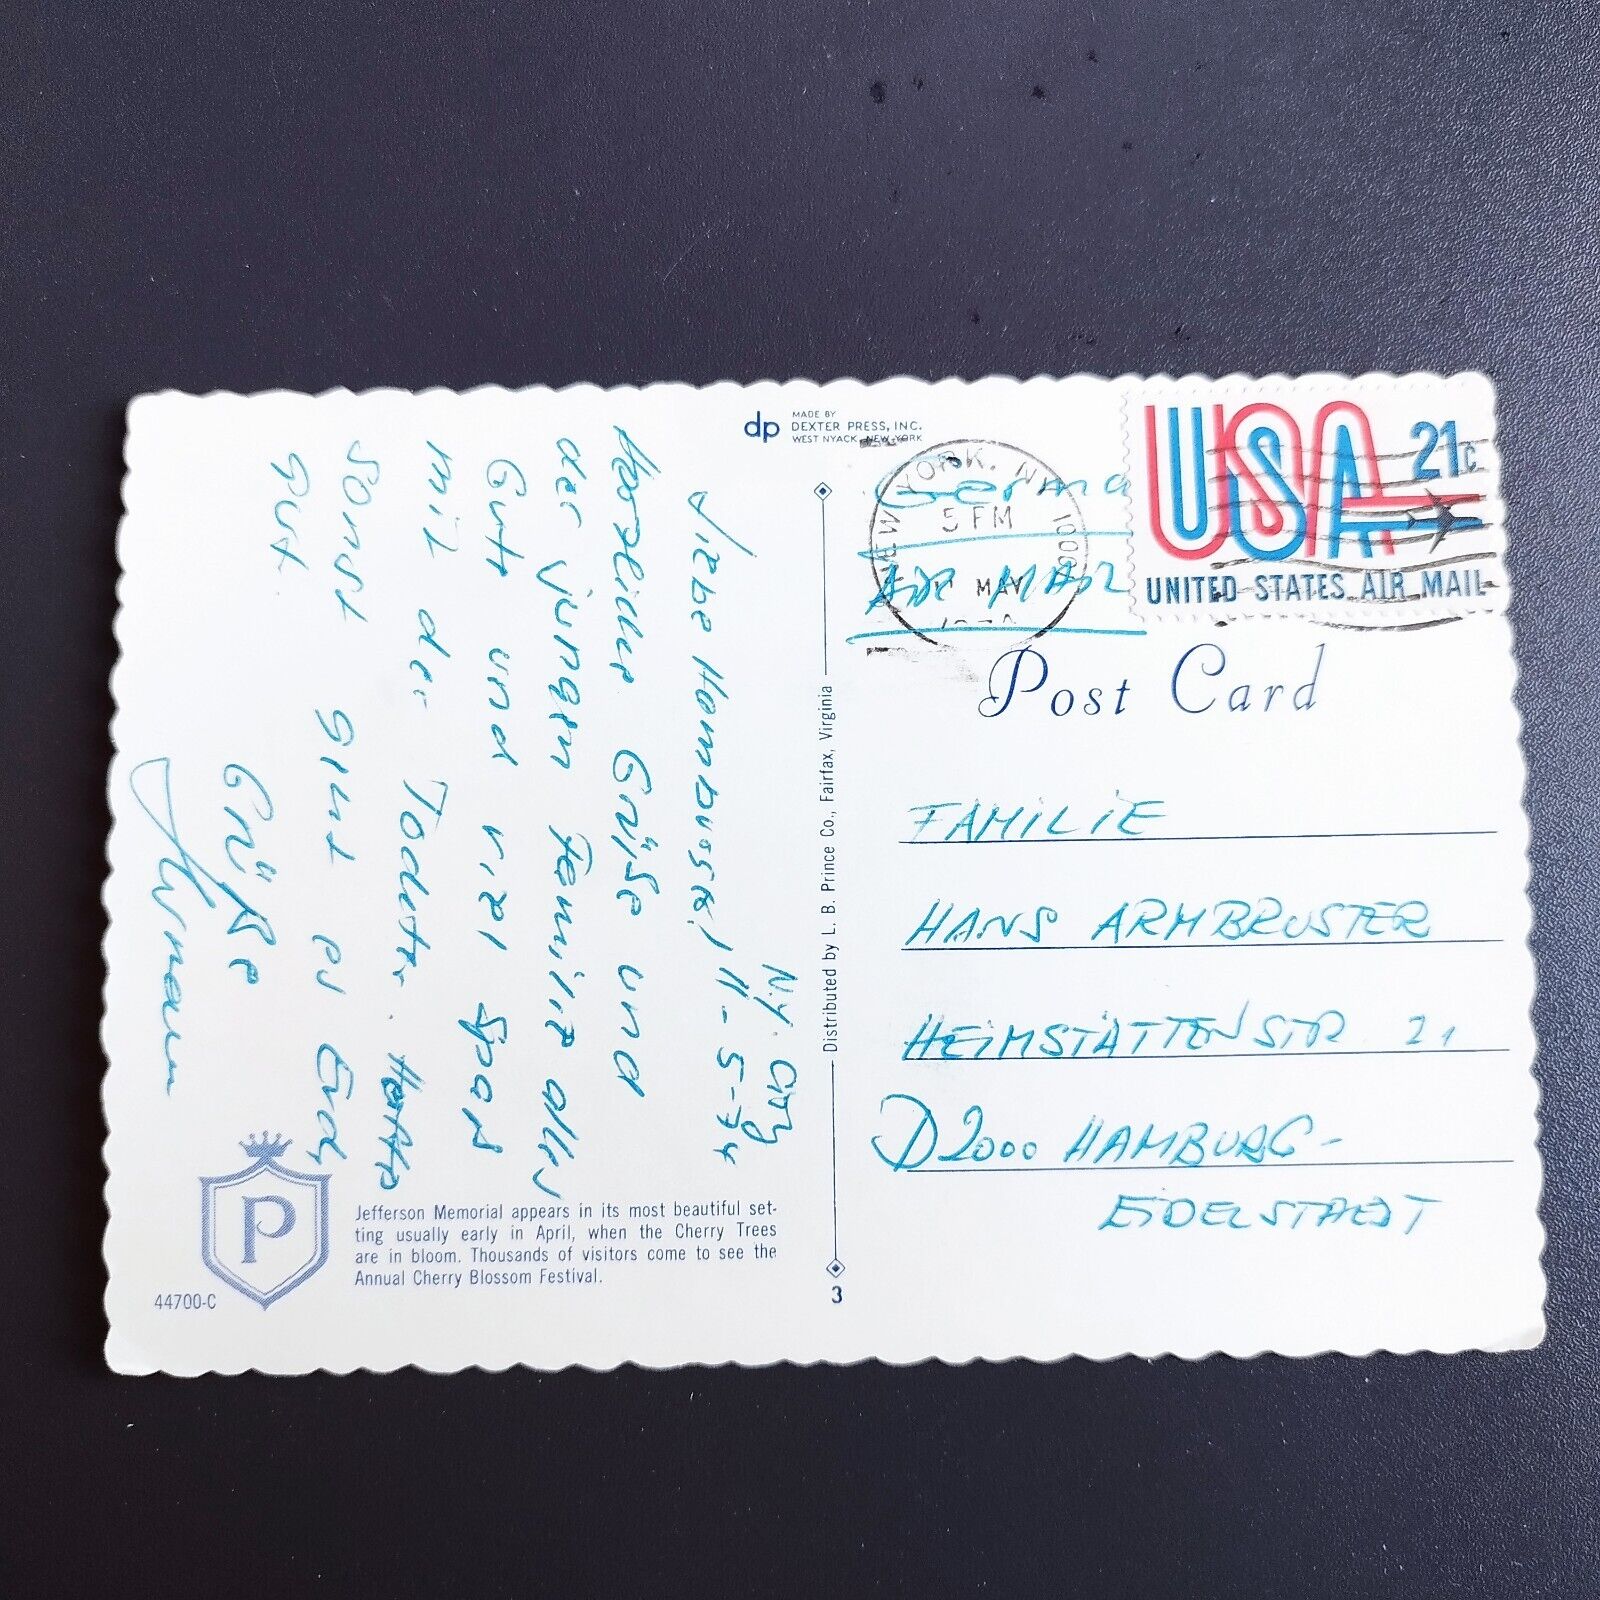 dp
MADE BY
DEXTER PRESS, INC.
WEST NYACK, NEW YORK
N.Y. City
11-5-74
Liebe Hamburger!
Herzliche Grüße und
der jungen Familie alles
Gute und viel Spaß
mit der Tochter. Hoffe
sonst geht es Euch
gut
Grüße
P
44700-C
Jefferson Memorial appears in its most beautiful set-
ting usually early in April, when the Cherry Trees
are in bloom. Thousands of visitors come to see the
Annual Cherry Blossom Festival.
Distributed by L. B. Prince Co., Fairfax, Virginia
3
NEW YORK, NY 10001
5 PM
11 MAY
Germa
AIR MAIL
USA 21c
UNITED STATES AIR MAIL
Post Card
FAMILIE
HANS ARMBRUSTER
HEIMSTÄTTENSTR 21
D 2000 HAMBURG-
EIDELSTAEDT